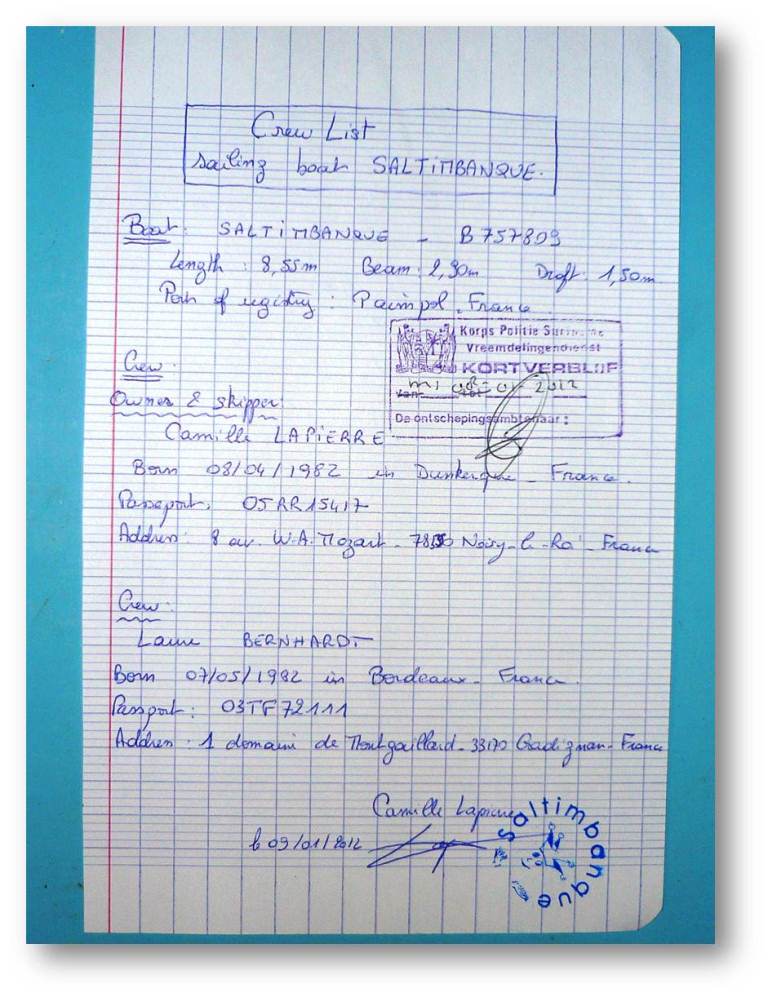 Crew List
sailing boat SALTIMBANQUE.
Boat: SALTIMBANQUE - B 757809
Length : 8,55m Beam: 2,90m Draft: 1,50m
Port of registry : Paimpol - France
Korps Politie Suriname
Vreemdelingendienst
KORTVERBLIJF
2012
De ontschepingsambtenaar :
Crew:
Owner & skipper:
Camille LAPIERRE
Born 08/04/1982 in Dunkerque - France.
Passeport: 05RR15417
Address: 8 av. W.A. Mozart - Noisy-le-Roi - France
Crew:
Laure BERNHARDT
Born 07/05/1982 in Bordeaux - France.
Passport: 03TF72111
Address: 1 domaine de Montgaillard - 33170 Gradignan - France
Camille Lapierre
le 09/01/2012
Saltimbanque